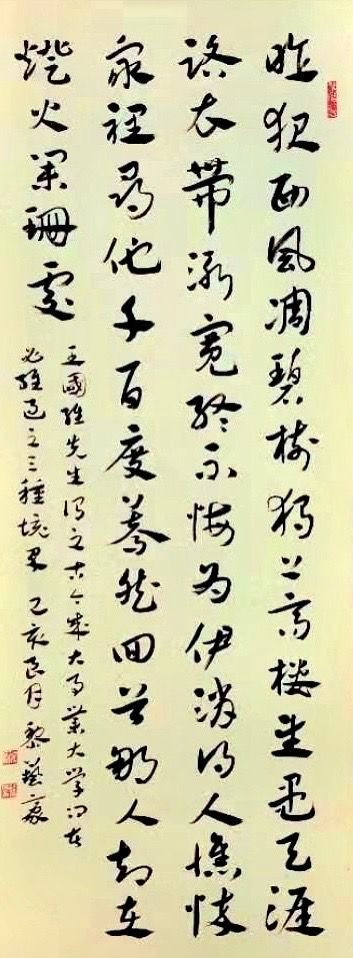 昨夜西風凋碧樹獨上高樓望盡天涯
路衣帶漸寬終不悔為伊消得人憔悴
眾裡尋他千百度驀然回首那人却在
燈火闌珊處
王國維先生謂之古今成大事業大学问者
必經過之三種境界 乙亥良月 黎藝豪